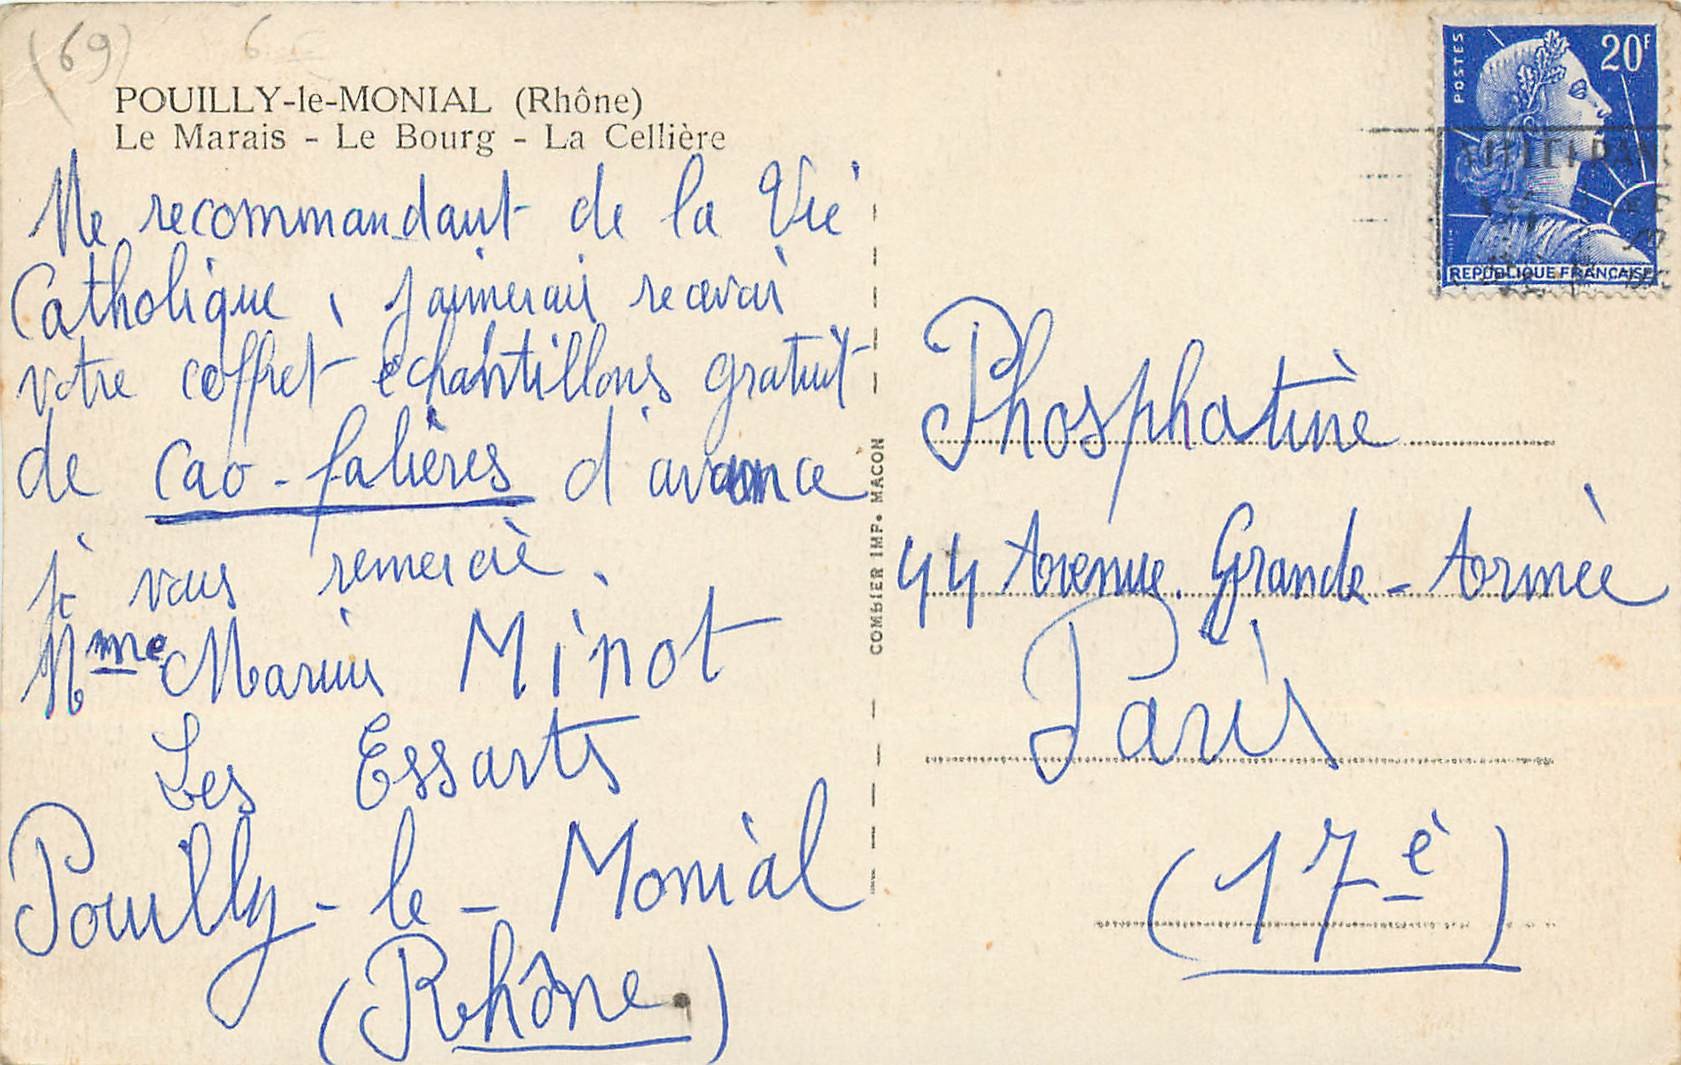 (69)
6
POUILLY-le-MONIAL (Rhône)
Le Marais - Le Bourg - La Cellière
Me recommandant de la Vie
Catholique, j'aimerais recevoir
votre coffret échantillons gratuit
de Cao-falières d'avance
je vous remercie.
Mme Marius Minot
Les Essarts
Pouilly-le-Monial
(Rhône)
COMBIER IMP. MACON
POSTES
20F
REPUBLIQUE FRANCAISE
Phosphatine
44 Avenue Grande-Armée
Paris
(17è)